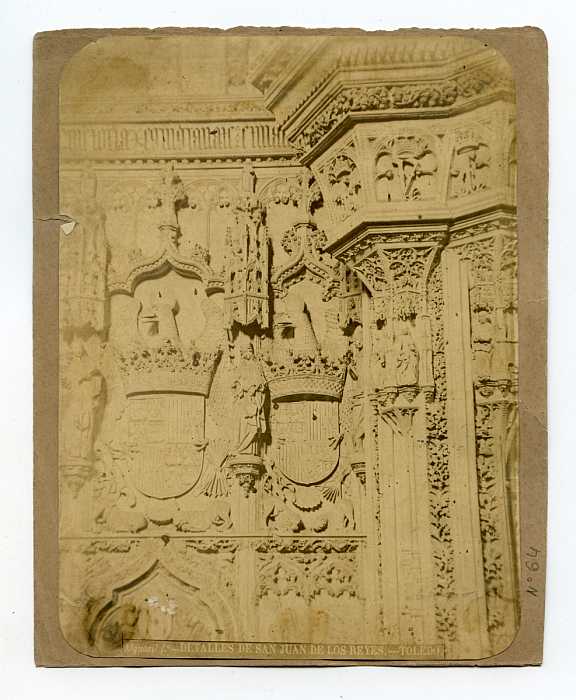 Alguacil fº—DETALLES DE SAN JUAN DE LOS REYES.—TOLEDO
Nº 64